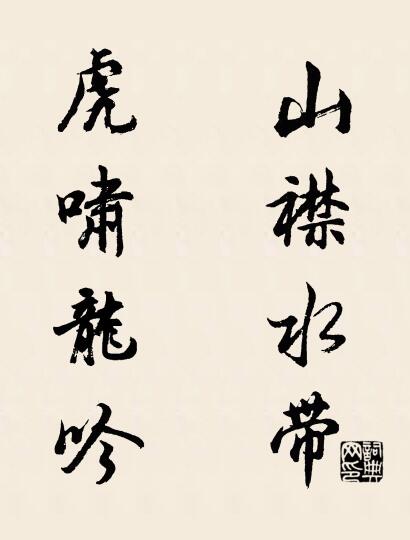 山襟水带
虎啸龍吟
詞典網印